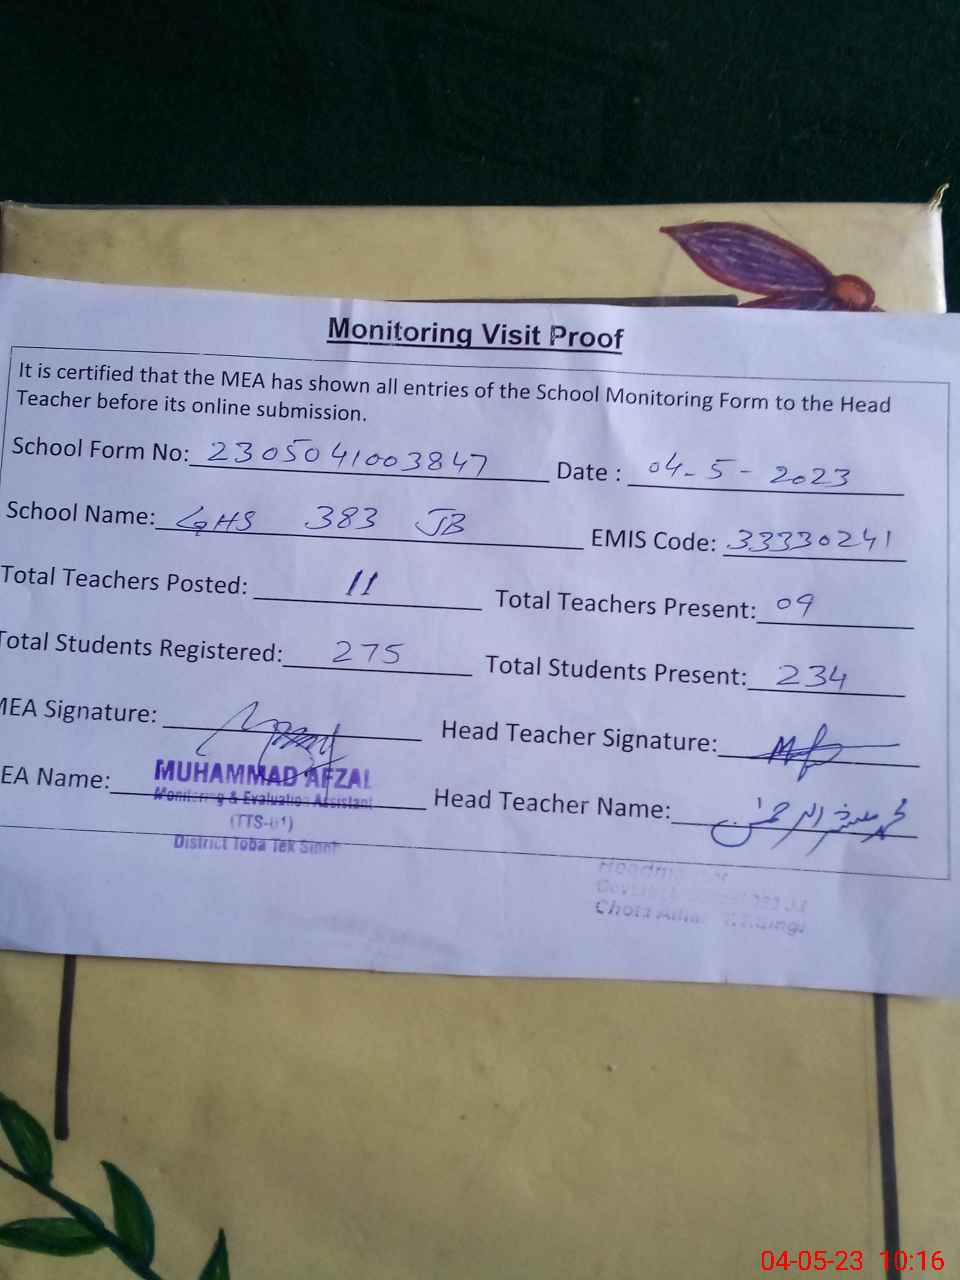 Monitoring Visit Proof
It is certified that the MEA has shown all entries of the School Monitoring Form to the Head
Teacher before its online submission.
School Form No: 2305041003847 Date : 04-5-2023
School Name: GHS 383 JB EMIS Code: 33330241
Total Teachers Posted: 11 Total Teachers Present: 09
Total Students Registered: 275 Total Students Present: 234
MEA Signature: Head Teacher Signature:
EA Name: MUHAMMAD AFZAL Head Teacher Name:
Monitoring & Evaluation Assistant
(TTS-01)
District Toba Tek Singh
04-05-23 10:16